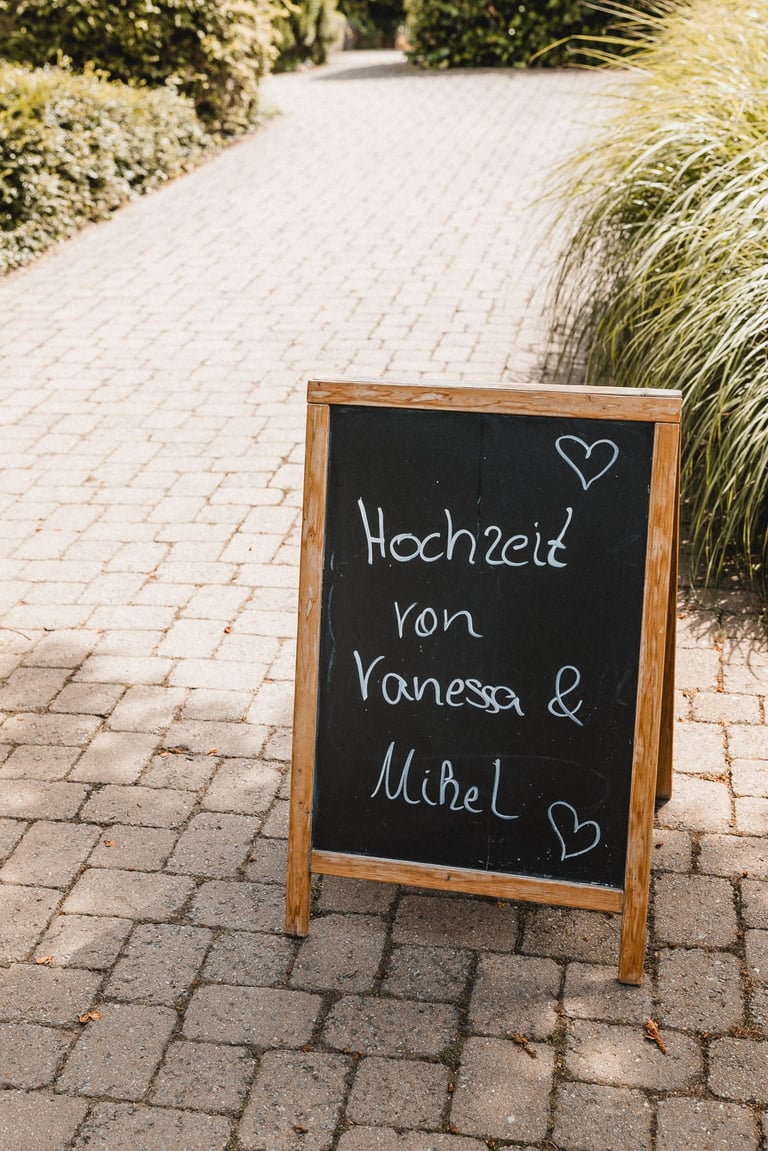 Hochzeit
von
Vanessa &
Mikel